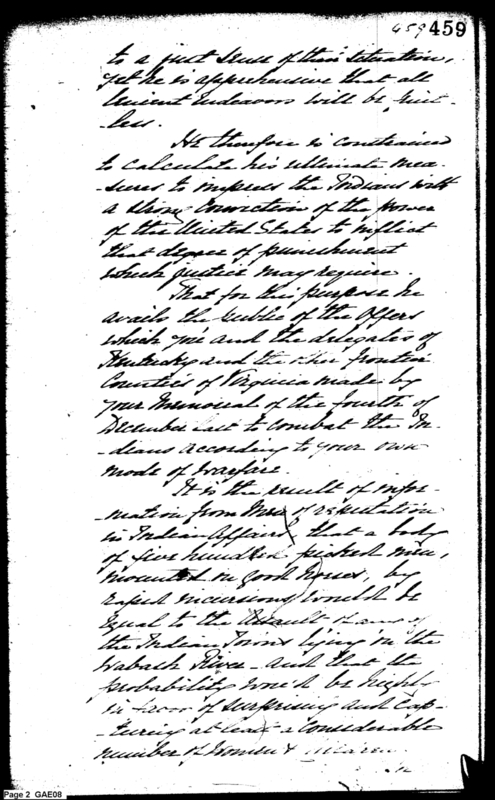 459 459
to a just sense of their situation,
yet he is apprehensive that all
lenient endeavors will be fruit-
-less.
He therefore is constrained
to calculate his ultimate mea-
-sures to impress the Indians with
a strong conviction of the power
of the United States to inflict
that degree of punishment
which justice may require.
That for this purpose he
avails the public of the Offers
which you and the delegates of
Kentucky and the other frontier
Counties of Virginia made by
your Memorial of the fourth of
December last to combat the In-
-dians according to your own
mode of warfare.
It is the result of infor-
-mation from Men of reputation
in Indian Affairs, that a body
of five hundred picked men,
mounted on good horses, by
rapid incursions would be
equal to the Assault of any of
the Indian Towns lying on the
Wabash River - and that the
probability would be highly
in favor of surprising and Cap-
-turing at least a considerable
number of Women &
Page 2 GAE08